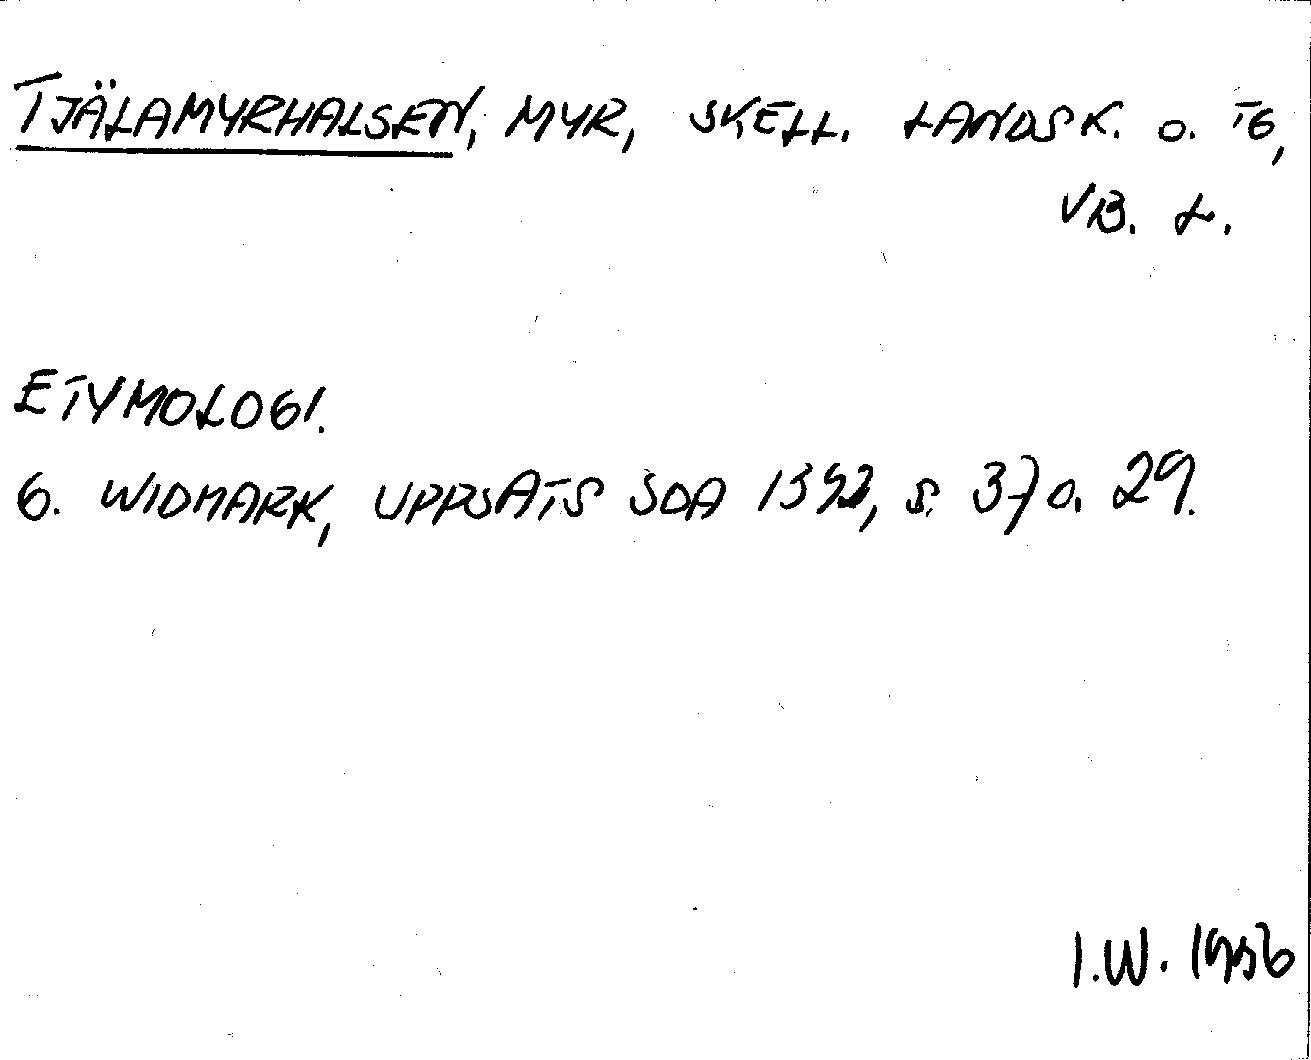 TJÄLAMYRHALSEN, MYR, SKELL. LANDSK. O. TG,
VB. L.
ETYMOLOGI.
G. WIDMARK, UPPSATS SOA 1392, S. 37 O. 29.
I.W. 1956